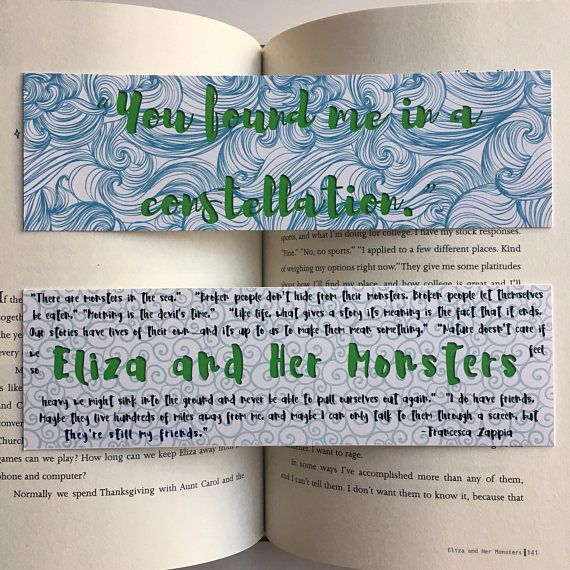 "You found me in a
constellation."
sports, and what I'm doing for college. I have my stock responses.
"Fine." "No, no sports." "I applied to a few different places. Kind
of weighing my options right now." They give me some platitudes
"There are monsters in the sea." "Broken people don't hide from their monsters. Broken people let themselves
be eaten." "Morning is the devil's time." "Like life, what gives a story its meaning is the fact that it ends.
Our stories have lives of their own—and its up to us to make them mean something." "Nature doesn't care if
we feel
so
Eliza and Her Monsters
heavy we might sink into the ground and never be able to pull ourselves out again." "I do have friends.
Maybe they live hundreds of miles away from me, and maybe I can only talk to them through a screen, but
they're still my friends."
-Francesca Zappia
games can we play? How long can we keep Eliza away from
phone and computer?
Normally we spend Thanksgiving with Aunt Carol and the
want to rage.
In some ways I've accomplished more than any of them,
and I can't tell them. I don't want them to know it, because that
Eliza and Her Monsters 141